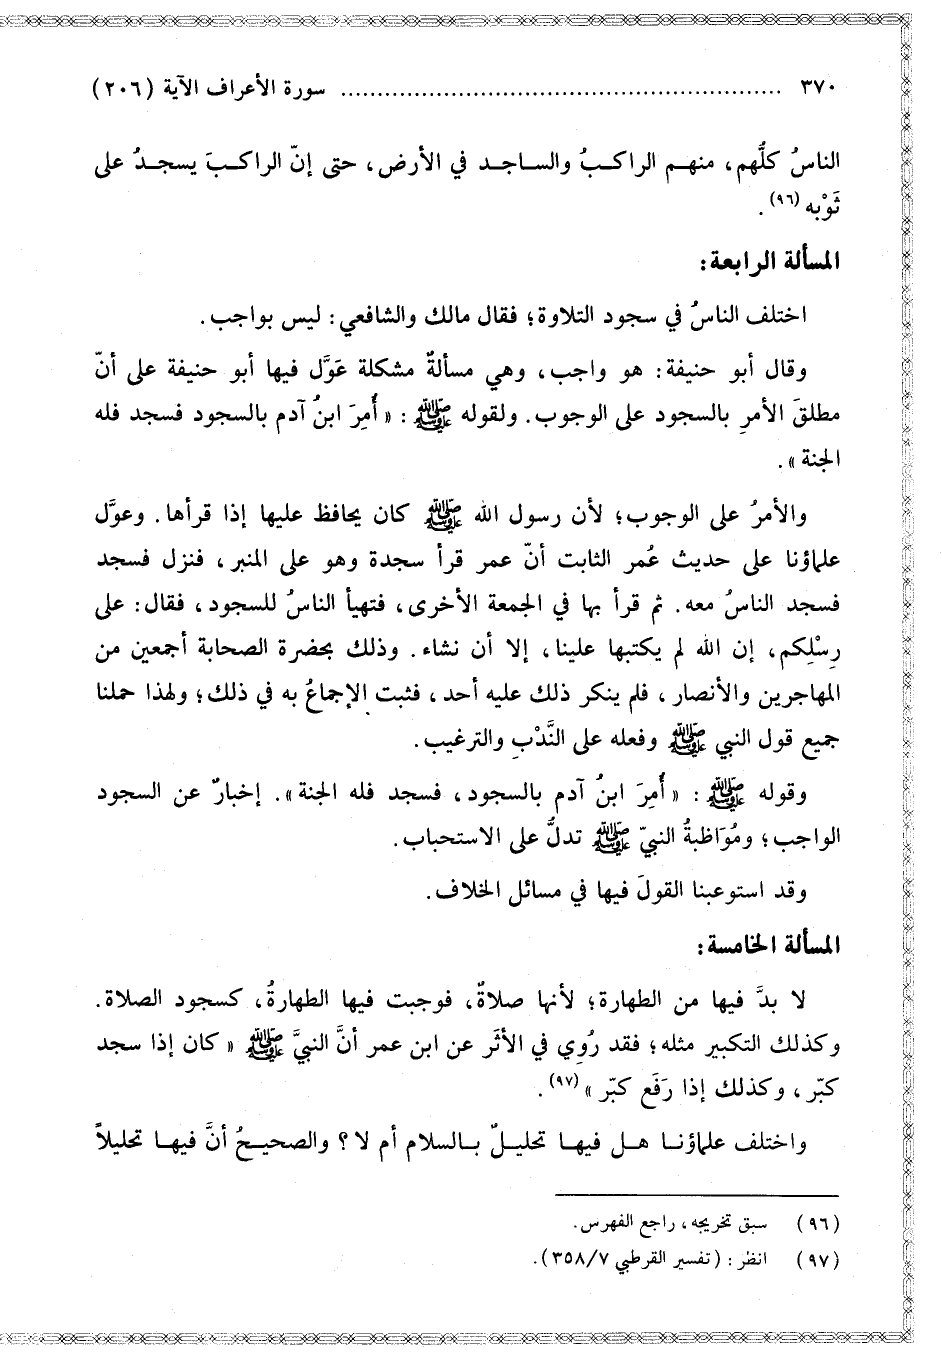 ٣٧٠ ........................................................ سورة الأعراف الآية (٢٠٦)
الناسُ كلُّهم، منهم الراكبُ والساجد في الأرض، حتى إنّ الراكبَ يسجدُ على
ثَوْبه (٩٦) .
المسألة الرابعة:
اختلف الناسُ في سجود التلاوة؛ فقال مالك والشافعي: ليس بواجب.
وقال أبو حنيفة: هو واجب، وهي مسألةٌ مشكلة عَوَّل فيها أبو حنيفة على أنّ
مطلقَ الأمرِ بالسجود على الوجوب. ولقوله ﷺ: «أُمِرَ ابنُ آدم بالسجود فسجد فله
الجنة».
والأمرُ على الوجوب؛ لأن رسول الله ﷺ كان يحافظ عليها إذا قرأها. وعوَّل
علماؤنا على حديث عُمر الثابت أنّ عمر قرأ سجدة وهو على المنبر، فنزل فسجد
فسجد الناسُ معه. ثم قرأ بها في الجمعة الأخرى، فتهيأ الناسُ للسجود، فقال: على
رِسْلِكم، إن الله لم يكتبها علينا، إلا أن نشاء. وذلك بحضرة الصحابة أجمعين من
المهاجرين والأنصار، فلم ينكر ذلك عليه أحد، فثبت الإجماعُ به في ذلك؛ ولهذا حملنا
جميع قول النبي ﷺ وفعله على النَّدْبِ والترغيب.
وقوله ﷺ: «أُمِرَ ابنُ آدم بالسجود، فسجد فله الجنة». إخبارٌ عن السجود
الواجب؛ ومُوَاظبةُ النبيّ ﷺ تدلُّ على الاستحباب.
وقد استوعبنا القولَ فيها في مسائل الخلاف.
المسألة الخامسة:
لا بدَّ فيها من الطهارة؛ لأنها صلاةٌ، فوجبت فيها الطهارةُ، كسجود الصلاة.
وكذلك التكبير مثله؛ فقد رُوِي في الأثَر عن ابن عمر أنَّ النبيَّ ﷺ «كان إذا سجد
كبّر، وكذلك إذا رَفَع كبّر» (٩٧).
واختلف علماؤنا هل فيها تحليلٌ بالسلام أم لا؟ والصحيحُ أنَّ فيها تحليلاً
(٩٦) سبق تخريجه، راجع الفهرس.
(٩٧) انظر: (تفسير القرطبي ٣٥٨/٧).